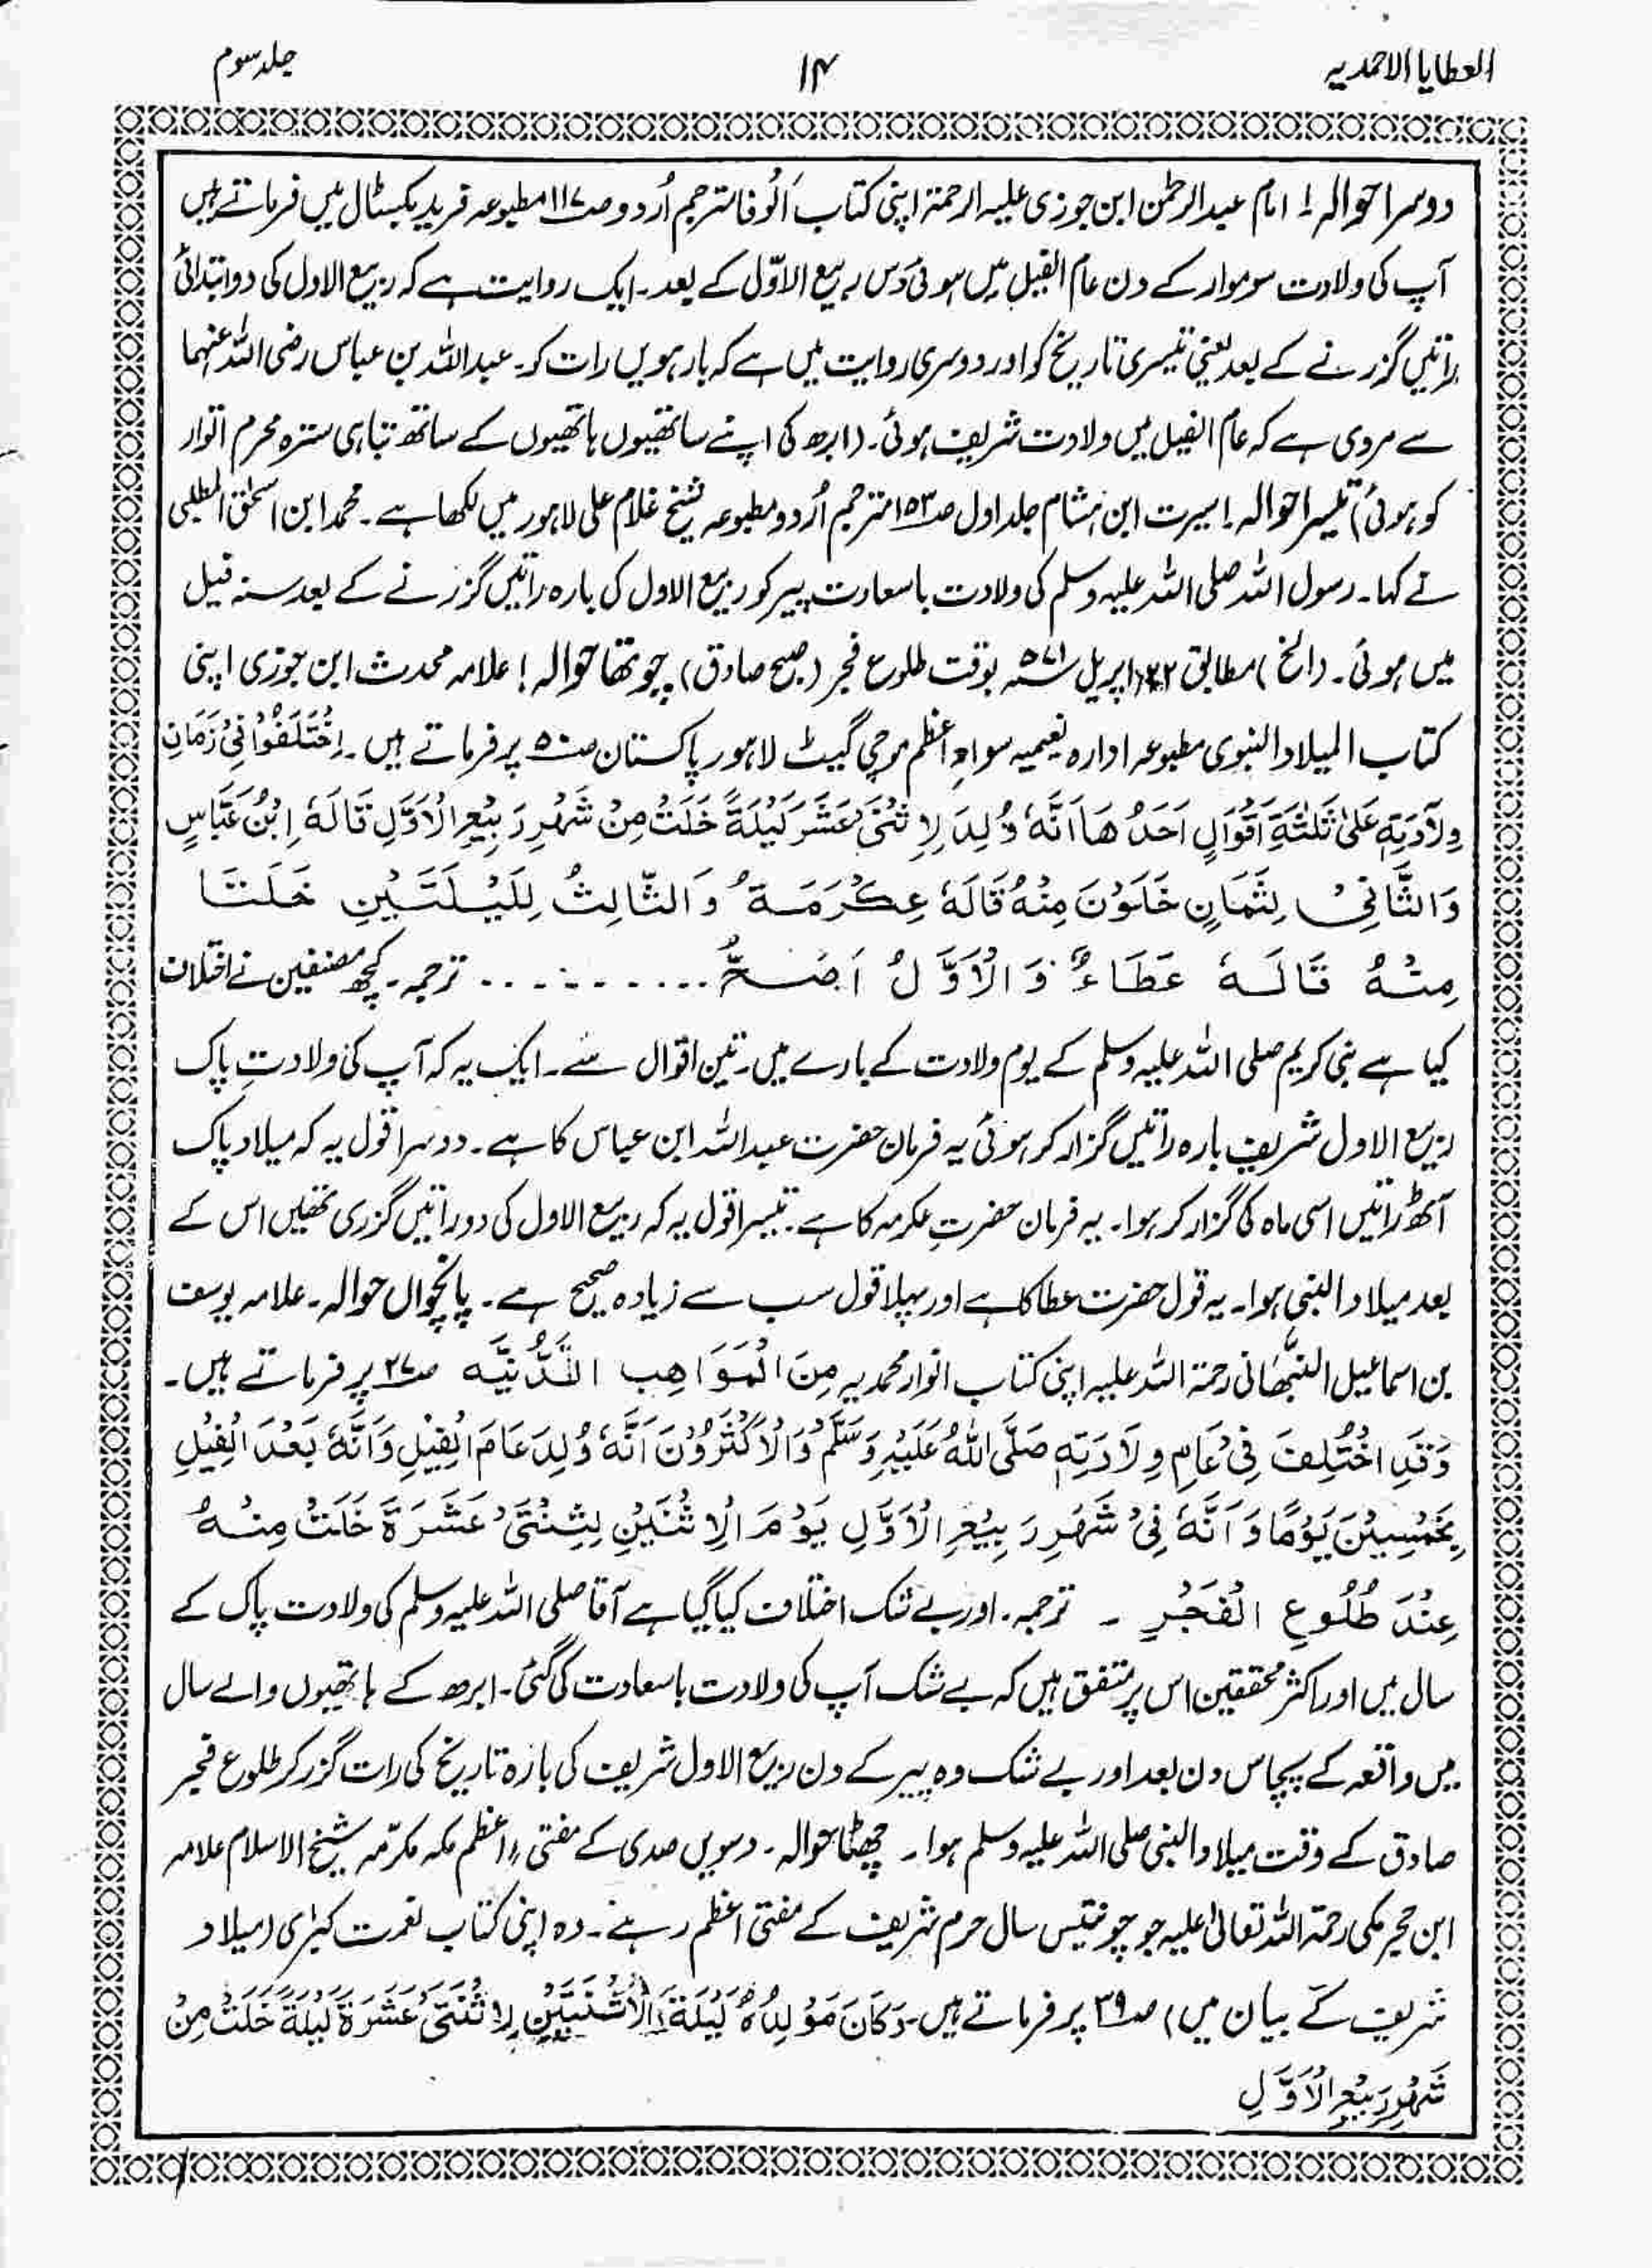 العطایا الاحمدیہ
۱۴
جلد سوم
دوسرا حوالہ! امام عبدالرحمٰن ابن جوزی علیہ الرحمۃ اپنی کتاب اَلْوفا مترجم اُردو صـ۱۱۷ مطبوعہ فرید بکسٹال میں فرماتے ہیں
آپ کی ولادت سوموار کے دن عام الفیل میں ہوئی دَس ربیع الاوّل کے بعد۔ ایک روایت ہے کہ ربیع الاول کی دو ابتدائی
راتیں گزرنے کے بعد یعنی تیسری تاریخ کو اور دوسری روایت میں ہے کہ بارہویں رات کو۔ عبداللہ بن عباس رضی اللہ عنہما
سے مروی ہے کہ عام الفیل میں ولادت شریف ہوئی۔ (ابرھ کی اپنے ساتھیوں ہاتھیوں کے ساتھ تباہی سترہ محرم اتوار
کو ہوئی) تیسرا حوالہ! سیرت ابن ہشام جلد اول صـ۱۵۳ مترجم اُردو مطبوعہ شیخ غلام علی لاہور میں لکھا ہے۔ محمد ابن اسحٰق المطلبی
نے کہا۔ رسول اللہ صلی اللہ علیہ وسلم کی ولادت باسعادت پیر کو ربیع الاول کی بارہ راتیں گزرنے کے بعد سنہ فیل
میں ہوئی۔ (الخ) مطابق ۲۲؍اپریل ۵۷۱ء بوقت طلوع فجر (صبح صادق) چوتھا حوالہ! علامہ محدث ابن جوزی اپنی
کتاب المیلاد النبوی مطبوعہ ادارہ نعیمیہ سوادِ اعظم موچی گیٹ لاہور پاکستان صـ۵۰ پر فرماتے ہیں۔ اِخْتَلَفُوْا فِیْ زَمَانِ
وِلَادَتِہٖ عَلیٰ ثَلٰثَۃِ اَقْوَالٍ اَحَدُ ھَا اَنَّہٗ وُلِدَ لِاِ ثْنَیْ عَشَرَ لَیْلَۃً خَلَتْ مِنْ شَھْرِ رَبِیْعِ الْاَوَّلِ قَالَہٗ اِبْنُ عَبَّاسٍ
وَالثَّانِیْ لِثَمَانٍ خَلَوْنَ مِنْہُ قَالَہٗ عِکْرَمَۃُ وَالثَّالِثُ لِلَیْلَتَیْنِ خَلَتَا
مِنْہُ قَالَہٗ عَطَاءٌ وَالْاَوَّلُ اَصَحُّ.......... ترجمہ۔ کچھ مصنفین نے اختلاف
کیا ہے نبی کریم صلی اللہ علیہ وسلم کے یوم ولادت کے بارے میں۔ تین اقوال سے۔ ایک یہ کہ آپ کی ولادتِ پاک
ربیع الاول شریف بارہ راتیں گزار کر ہوئی یہ فرمان حضرت عبداللہ ابن عباس کا ہے۔ دوسرا قول یہ کہ میلاد پاک
آٹھ راتیں اسی ماہ کی گزار کر ہوا۔ یہ فرمان حضرتِ عکرمہ کا ہے۔ تیسرا قول یہ کہ ربیع الاول کی دو راتیں گزری تھیں اس کے
بعد میلاد النبی ہوا۔ یہ قول حضرت عطا کا ہے اور پہلا قول سب سے زیادہ صحیح ہے۔ پانچواں حوالہ۔ علامہ یوسف
بن اسماعیل النبھانی رحمۃ اللہ علیہ اپنی کتاب انوار محمدیہ مِنَ الْمَوَاھِب اللَّدُنِّیَّہ صـ۲۷ پر فرماتے ہیں۔
وَقَدِ اخْتُلِفَ فِیْ عَامِ وِلَادَتِہٖ صَلَّی اللہُ عَلَیْہِ وَسَلَّمْ وَالْاَکْثَرُوْنَ اَنَّہٗ وُلِدَ عَامَ الْفِیْلِ وَاَنَّہٗ بَعْدَ الْفِیْلِ
بِخَمْسِیْنَ یَوْمًا وَاَنَّہٗ فِیْ شَھْرِ رَبِیْعِ الْاَوَّلِ یَوْمَ الْاِثْنَیْنِ لِثِنْتَیْ عَشَرَۃَ خَلَتْ مِنْہُ
عِنْدَ طُلُوعِ الْفَجْرِ ۔ ترجمہ۔ اور بے شک اختلاف کیا گیا ہے آقا صلی اللہ علیہ وسلم کی ولادت پاک کے
سال میں اور اکثر محققین اس پر متفق ہیں کہ بے شک آپ کی ولادت باسعادت کی گئی۔ ابرھ کے ہاتھیوں والے سال
میں واقعہ کے پچاس دن بعد اور بے شک وہ پیر کے دن ربیع الاول شریف کی بارہ تاریخ کی رات گزر کر طلوع فجر
صادق کے وقت میلاد النبی صلی اللہ علیہ وسلم ہوا۔ چھٹا حوالہ۔ دسویں صدی کے مفتیِ اعظم مکہ مکرّمہ شیخ الاسلام علامہ
ابن حجر مکی رحمۃ اللہ تعالیٰ علیہ جو چونتیس سال حرم شریف کے مفتی اعظم رہے۔ وہ اپنی کتاب نعمت کبرٰی (میلاد
شریف کے بیان میں) صـ۳۹ پر فرماتے ہیں۔ وَکَانَ مَوْلِدُہٗ لَیْلَۃَ الْاِثْنَیْنِ لِاِثْنَتَیْ عَشَرَۃَ لَیْلَۃً خَلَتْ مِنْ
شَھْرِ رَبِیْعِ الْاَوَّلِ